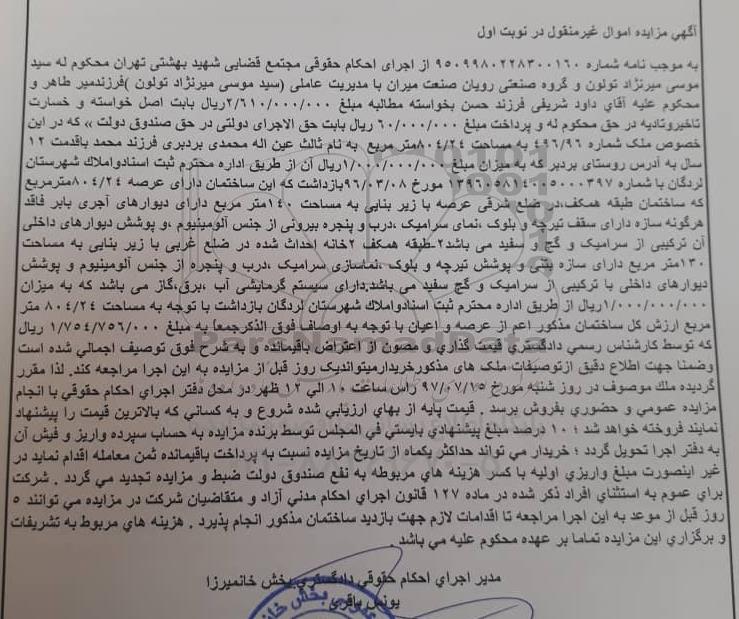 آگهي مزايده اموال غيرمنقول در نوبت اول
به موجب نامه شماره ۹۵۰۹۹۸۰۲۲۸۳۰۰۱۶۰ از اجرای احکام حقوقی مجتمع قضایی شهید بهشتی تهران محکوم له سید
موسی میرنژاد تولون و گروه صنعتی رویان صنعت میران با مدیریت عاملی (سید موسی میرنژاد تولون )فرزندمیر طاهر و
محکوم علیه آقای داود شریفی فرزند حسن بخواسته مطالبه مبلغ ۲/۶۱۰/۰۰۰/۰۰۰ریال بابت اصل خواسته و خسارت
تاخیروتادیه در حق محکوم له و پرداخت مبلغ ۶۰/۰۰۰/۰۰۰ ریال بابت حق الاجرای دولتی در حق صندوق دولت » که در این
خصوص ملک شماره ۴۹۶/۹۶ به مساحت ۸۰۴/۲۴متر مربع به نام ثالث عین اله محمدی بردبری فرزند محمد باقدمت ۱۲
سال به آدرس روستای بردبر که به میزان مبلغ۱/۰۰۰/۰۰۰/۰۰۰ریال آن از طریق اداره محترم ثبت اسنادواملاک شهرستان
لردگان با شماره ۱۳۹۶۰۵۸۱۴۰۱۵۰۰۰۳۹۷ مورخ ۹۶/۰۳/۰۸بازداشت که این ساختمان دارای عرصه ۸۰۴/۲۴مترمربع
که ساختمان طبقه همکف،در ضلع شرقی عرصه با زیر بنایی به مساحت ۱۴۰متر مربع دارای دیوارهای آجری بابر فاقد
هرگونه سازه دارای سقف تیرچه و بلوک ،نمای سرامیک ،درب و پنجره بیرونی از جنس آلومینیوم ،و پوشش دیوارهای داخلی
آن ترکیبی از سرامیک و گچ و سفید می باشد۲-طبقه همکف ۲خانه احداث شده در ضلع غربی با زیر بنایی به مساحت
۱۳۰متر مربع دارای سازه بتنی و پوشش تیرچه و بلوک ،نماسازی سرامیک ،درب و پنجره از جنس آلومینیوم و پوشش
دیوارهای داخلی با ترکیبی از سرامیک و گچ سفید می باشد.دارای سیستم گرمایشی آب ،برق،گاز می باشد که به میزان
۱/۰۰۰/۰۰۰/۰۰۰ریال از طریق اداره محترم ثبت اسنادواملاک شهرستان لردگان بازداشت با توجه به مساحت ۸۰۴/۲۴ متر
مربع ارزش کل ساختمان مذکور اعم از عرصه و اعیان با توجه به اوصاف فوق الذکرجمعاً به مبلغ ۱/۷۵۴/۷۵۶/۰۰۰ ریال
كه توسط كارشناس رسمي دادگستري قيمت گذاري و مصون از اعتراض باقيمانده و به شرح فوق توصيف اجمالي شده است
وضمنا جهت اطلاع دقیق ازتوصيفات ملک های مذکورخریدارمیتواندیک روز قبل از مزایده به این اجرا مراجعه کند. لذا مقرر
گرديده ملك موصوف در روز شنبه مورخ ۹۷/۰۷/۱۵ راس ساعت ۱۰ الي ۱۲ ظهر در محل دفتر اجراي احكام حقوقي با انجام
مزايده عمومي و حضوري بفروش برسد . قيمت پايه از بهاي ارزيابي شده شروع و به كساني كه بالاترين قيمت را پيشنهاد
نمايند فروخته خواهد شد ؛ ۱۰ درصد مبلغ پيشنهادي بايستي في المجلس توسط برنده مزايده به حساب سپرده واريز و فيش آن
به دفتر اجرا تحويل گردد ؛ خريدار مي تواند حداكثر يكماه از تاريخ مزايده نسبت به پرداخت باقيمانده ثمن معامله اقدام نمايد در
غير اينصورت مبلغ واريزي اوليه با كسر هزينه هاي مربوطه به نفع صندوق دولت ضبط و مزايده تجديد مي گردد . شركت
براي عموم به استثناي افراد ذكر شده در ماده ۱۲۷ قانون اجراي احكام مدني آزاد و متقاضيان شركت در مزايده مي توانند ۵
روز قبل از موعد به اين اجرا مراجعه تا اقدامات لازم جهت بازديد ساختمان مذكور انجام پذيرد . هزينه هاي مربوط به تشريفات
و برگزاري اين مزايده تماما بر عهده محكوم عليه مي باشد .
مدير اجراي احكام حقوقي دادگستري بخش خانميرزا
يونس باقري